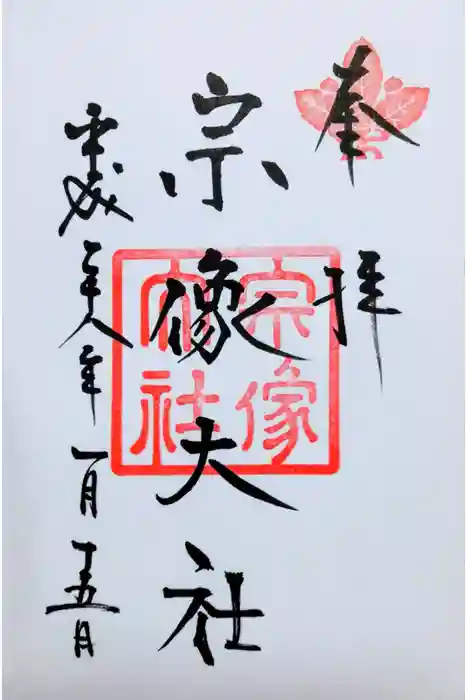 奉拝
宗像大社
宗像大社
平成二十八年一月十五日